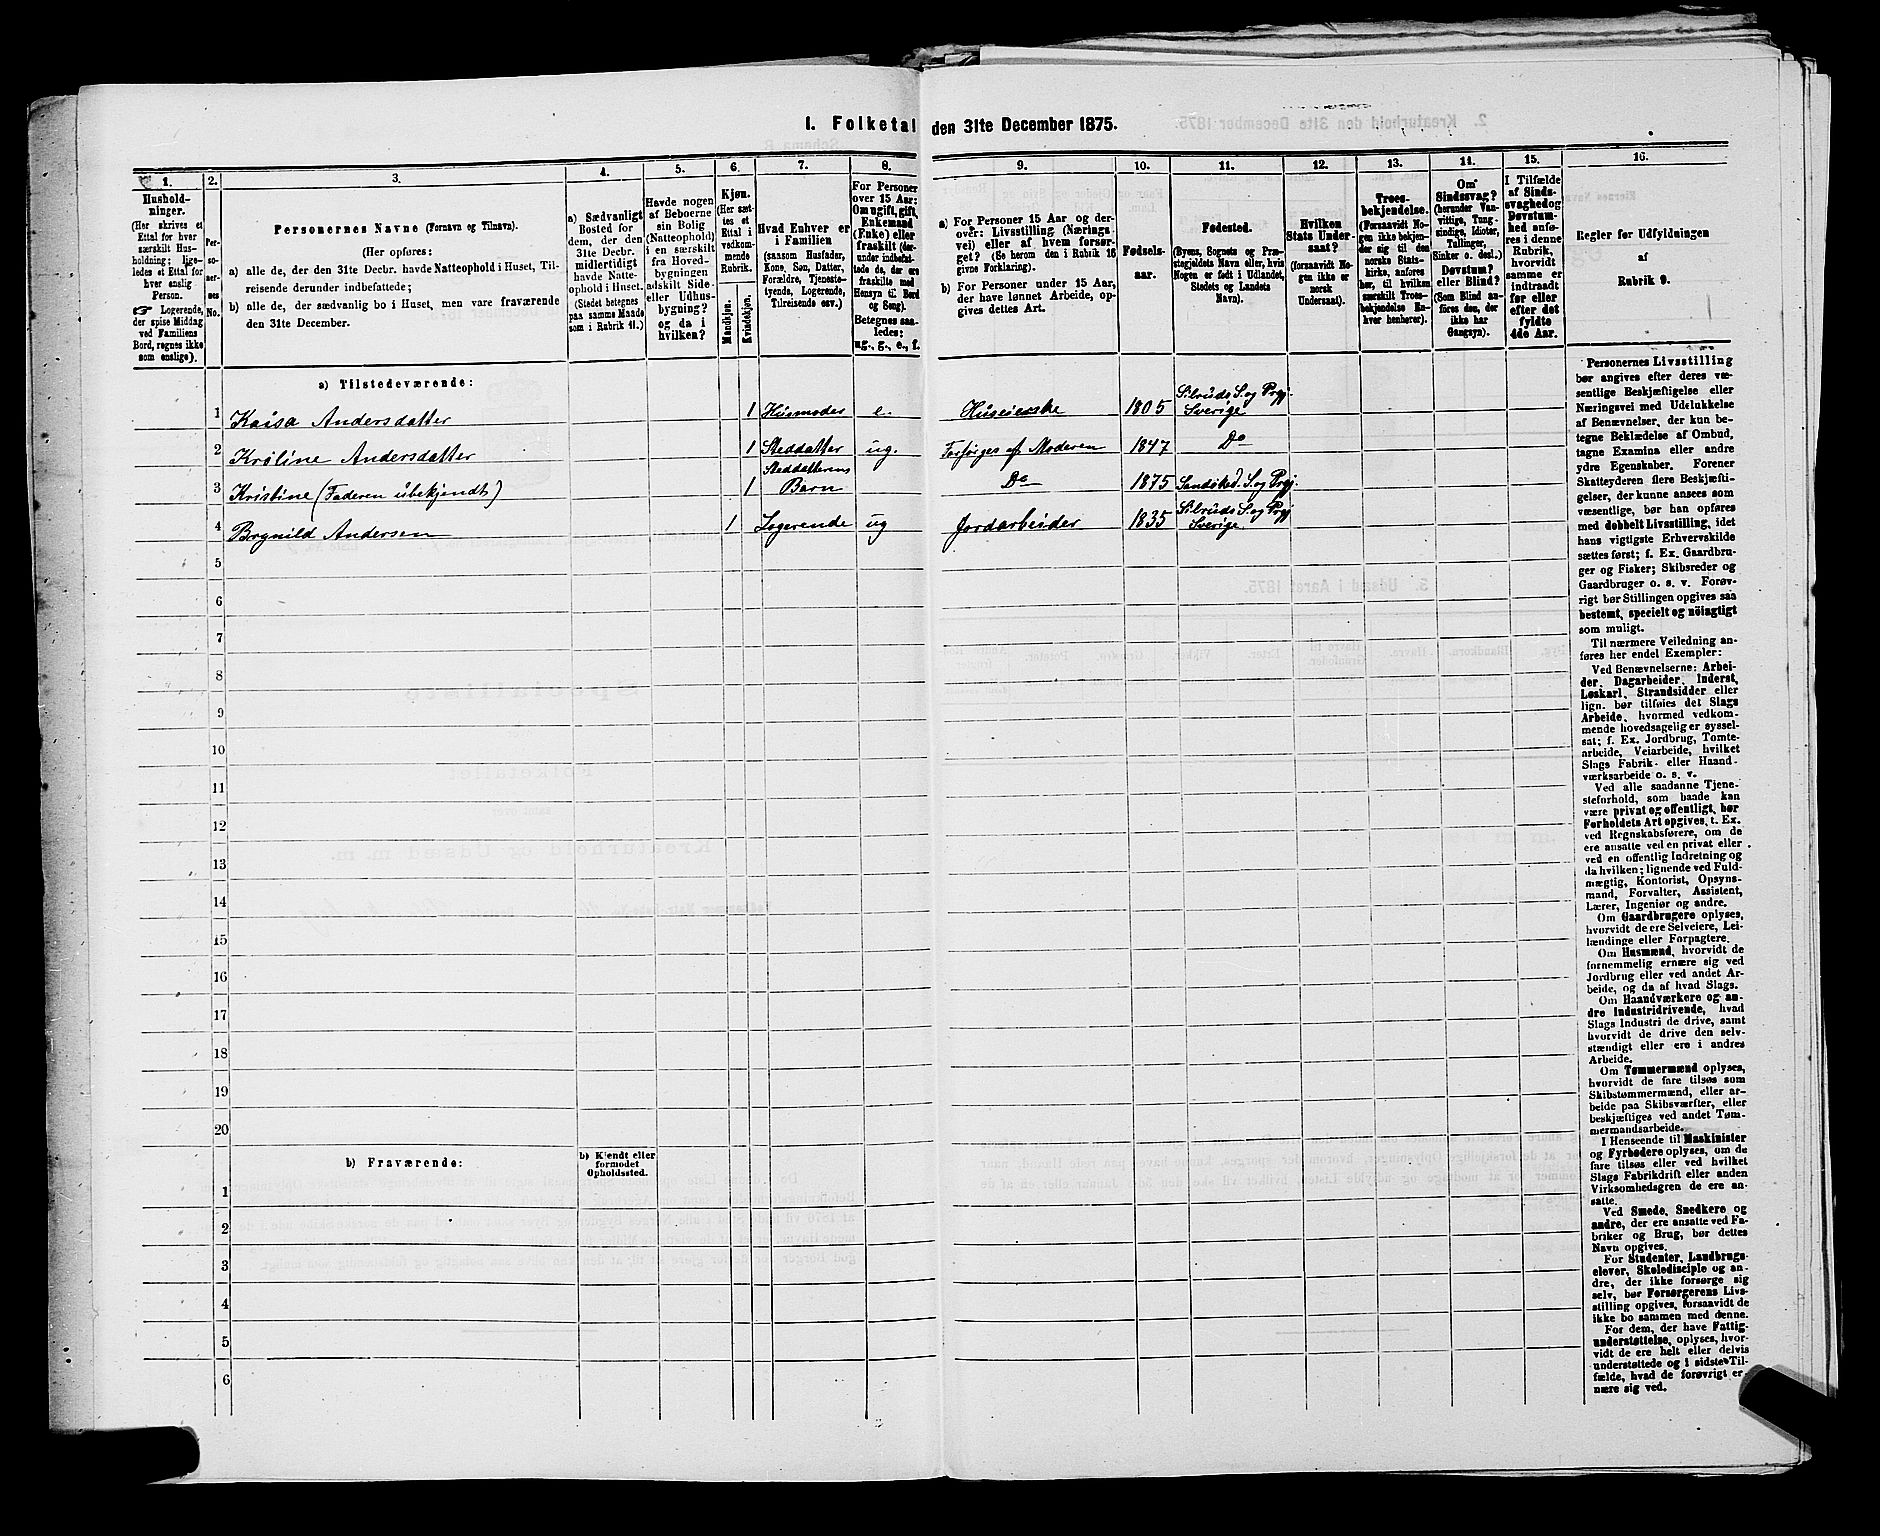 1. Folketal den 31te December 1875.
1.
2.
3.
4.
5.
6.
7.
8.
9.
10.
11.
12.
13.
14.
15.
16.
Hushold-
ninger.
(Her skrives et
Ettal for hver
særskilt Hus-
holdning; lige-
ledes et Ettal for
hver enslig
Person.
☞ Logerende,
der spise Middag
ved Familiens
Bord, regnes ikke
som enslige).
Per-
so-
ner-
nes
No.
Personernes Navne (Fornavn og Tilnavn).
(Her opføres:
a) alle de, der den 31te Decbr. havde Natteophold i Huset, Til-
reisende derunder indbefattede;
b) alle de, der sædvanlig bo i Huset, men vare fraværende
den 31te December.
a) Sædvanligt
Bosted for
dem, der den
31te Decbr.
midlertidigt
havde Natte-
ophold i Huset.
(Stedet betegnes
paa samme Maade
som i Rubrik 11.)
Havde nogen
af Beboerne
sin Bolig
(Natteophold)
i en særskilt
fra Hoved-
bygningen
adskilt Side-
eller Udhus-
bygning?
og da i
hvilken?
Kjøn.
(Her sæt-
tes et
Ettal i
vedkom-
mende
Rubrik.
Mandkjøn.
Kvindekjøn.
Hvad Enhver er
i Familien
(saasom Husfader,
Kone, Søn, Datter,
Forældre, Tjeneste-
tyende, Logerende,
Tilreisende osv.)
For Personer
over 15 Aar:
Om ugift, gift,
Enkemand
(Enke) eller
fraskilt (der-
under indbefat-
tede de, der ere
fraskilte med
Hensyn til Bord
og Seng).
Betegnes saa-
ledes:
ug., g., e., f.
a) For Personer 15 Aar og der-
over: Livsstilling (Nærings-
vei) eller af hvem forsør-
get? (Se herom den i Rubrik 16
givne Forklaring).
b) For Personer under 15 Aar,
der have lønnet Arbeide, op-
gives dettes Art.
Fødsels-
aar.
Fødested.
(Byens, Sognets og Præ-
stegjeldets Navn eller, hvis
Nogen er født i Udlandet,
Stedets og Landets
Navn).
Hvilken
Stats Under-
saat?
(forsaavidt No-
gen ikke er
norsk
Undersaat).
Troes-
bekjendelse.
(Forsaavidt No-
gen ikke bekjen-
der sig til den
norske Stats-
kirke, anføres
her, til hvilken
særskilt Troes-
bekjendelse En-
hver henhører).
Om
Sindssvag?
(herunder Van-
vittige, Tung-
sindige, Idioter,
Tullinger,
Sinker o. desl.)
Døvstum?
eller Blind?
(Som Blind an-
føres den, der
ikke har
Gangsyn).
I Tilfælde
af Sinds-
svaghed og
Døvstum-
hed anfø-
res i denne
Rubrik,
hvorvidt
samme er
indtraadt
før eller
efter det
fyldte
4de Aar.
Regler for Udfyldningen
af
Rubrik 9.
a) Tilstedeværende:
1 Kaisa Andersdatter 1 Husmoder e. Huseierske 1805 Silruds S. og Prgj. Sverige
2 Kroline Andersdatter 1 Steddatter ug. Forsørges af Moderen 1847 Do
3 Kristine (Faderen ubekjendt) 1 Steddatterens Barn Do 1875 S. og Prgj.
4 Bognild Andersen 1 Logerende ug Jordarbeider 1835 Silruds S. og Prgj Sverige
5
6
7
8
9
10
11
12
13
14
15
16
17
18
19
20
b) Fraværende:
b) Kjendt eller
formodet
Opholdssted.
1
2
3
4
5
6
Personernes Livsstilling
bør angives efter deres væ-
sentlige Beskjæftigelse eller
Næringsvei med Udelukkelse
af Benævnelser, der kun be-
tegne Beklædelse af Ombud,
tagne Examina eller andre
ydre Egenskaber. Forener
Skatteyderen flere Beskjæfti-
gelser, der kunne ansees som
væsentlige, bør han opføres
med dobbelt Livsstilling, idet
hans vigtigste Erhvervskilde
sættes først; f. Ex. Gaardbru-
ger og Fisker; Skibsreder og
Gaardbruger o. s. v. Forøv-
rigt bør Stillingen opgives saa
bestemt, specielt og nöiagtigt
som muligt.
Til nærmere Veiledning an-
føres her endel Exempler:
Ved Benævnelserne: Arbei-
der, Dagarbeider, Inderst,
Løskarl, Strandsidder eller
lign. bør tilføies det Slags
Arbeide, hvormed vedkom-
mende hovedsagelig er syssel-
sat; f. Ex. Jordbrug, Tomte-
arbeide, Veiarbeide, hvilket
Slags Fabrik- eller Haand-
værksarbeide o. s. v.
Ved alle saadanne Tjene-
steforhold, som baade kan
være privat og offentligt, bør
Forholdets Art opgives, t. Ex.
ved Regnskabsførere, om de
ere ansatte ved en privat eller
ved en offentlig Indretning og
da hvilken; lignende ved Fuld-
mægtig, Kontorist, Opsyns-
mand, Forvalter, Assistent,
Lærer, Ingeniør og andre.
Om Gaardbrugere oplyses,
hvorvidt de ere Selveiere, Lei-
lændinge eller Forpagtere.
Om Husmænd, hvorvidt de
fornemmelig ernære sig ved
Jordbrug eller ved andet Ar-
beide, og da af hvad Slags.
Om Haandværkere og an-
dre Industridrivende, hvad
Slags Industri de drive, samt
hvorvidt de drive den selv-
stændigt eller ere i andres
Arbeide.
Om Tømmermænd oplyses,
hvorvidt de fare tilsøs som
Skibstømmermænd, eller ar-
beide paa Skibsværfter, eller
beskjæftiges ved andet Tøm-
mermandsarbeide.
I Henseende til Maskinister
og Fyrbødere oplyses, om de
fare tilsøs eller ved hvilket
Slags Fabrikdrift eller anden
Virksomhedsgren de ere an-
satte.
Ved Smede, Snedkere og
andre, der ere ansatte ved Fa-
briker og Brug, bør dettes
Navn opgives.
For Studenter, Landbrugs-
elever, Skoledisciple og an-
dre, der ikke forsørge sig
selv, bør Forsørgerens Livs-
stilling opgives, forsaavidt de
ikke bo sammen med denne.
For dem, der have Fattig-
understøttelse, oplyses, hvor-
vidt de ere helt eller delvis
understøttede og i sidste Til-
fælde, hvad de forøvrigt er-
nære sig ved.